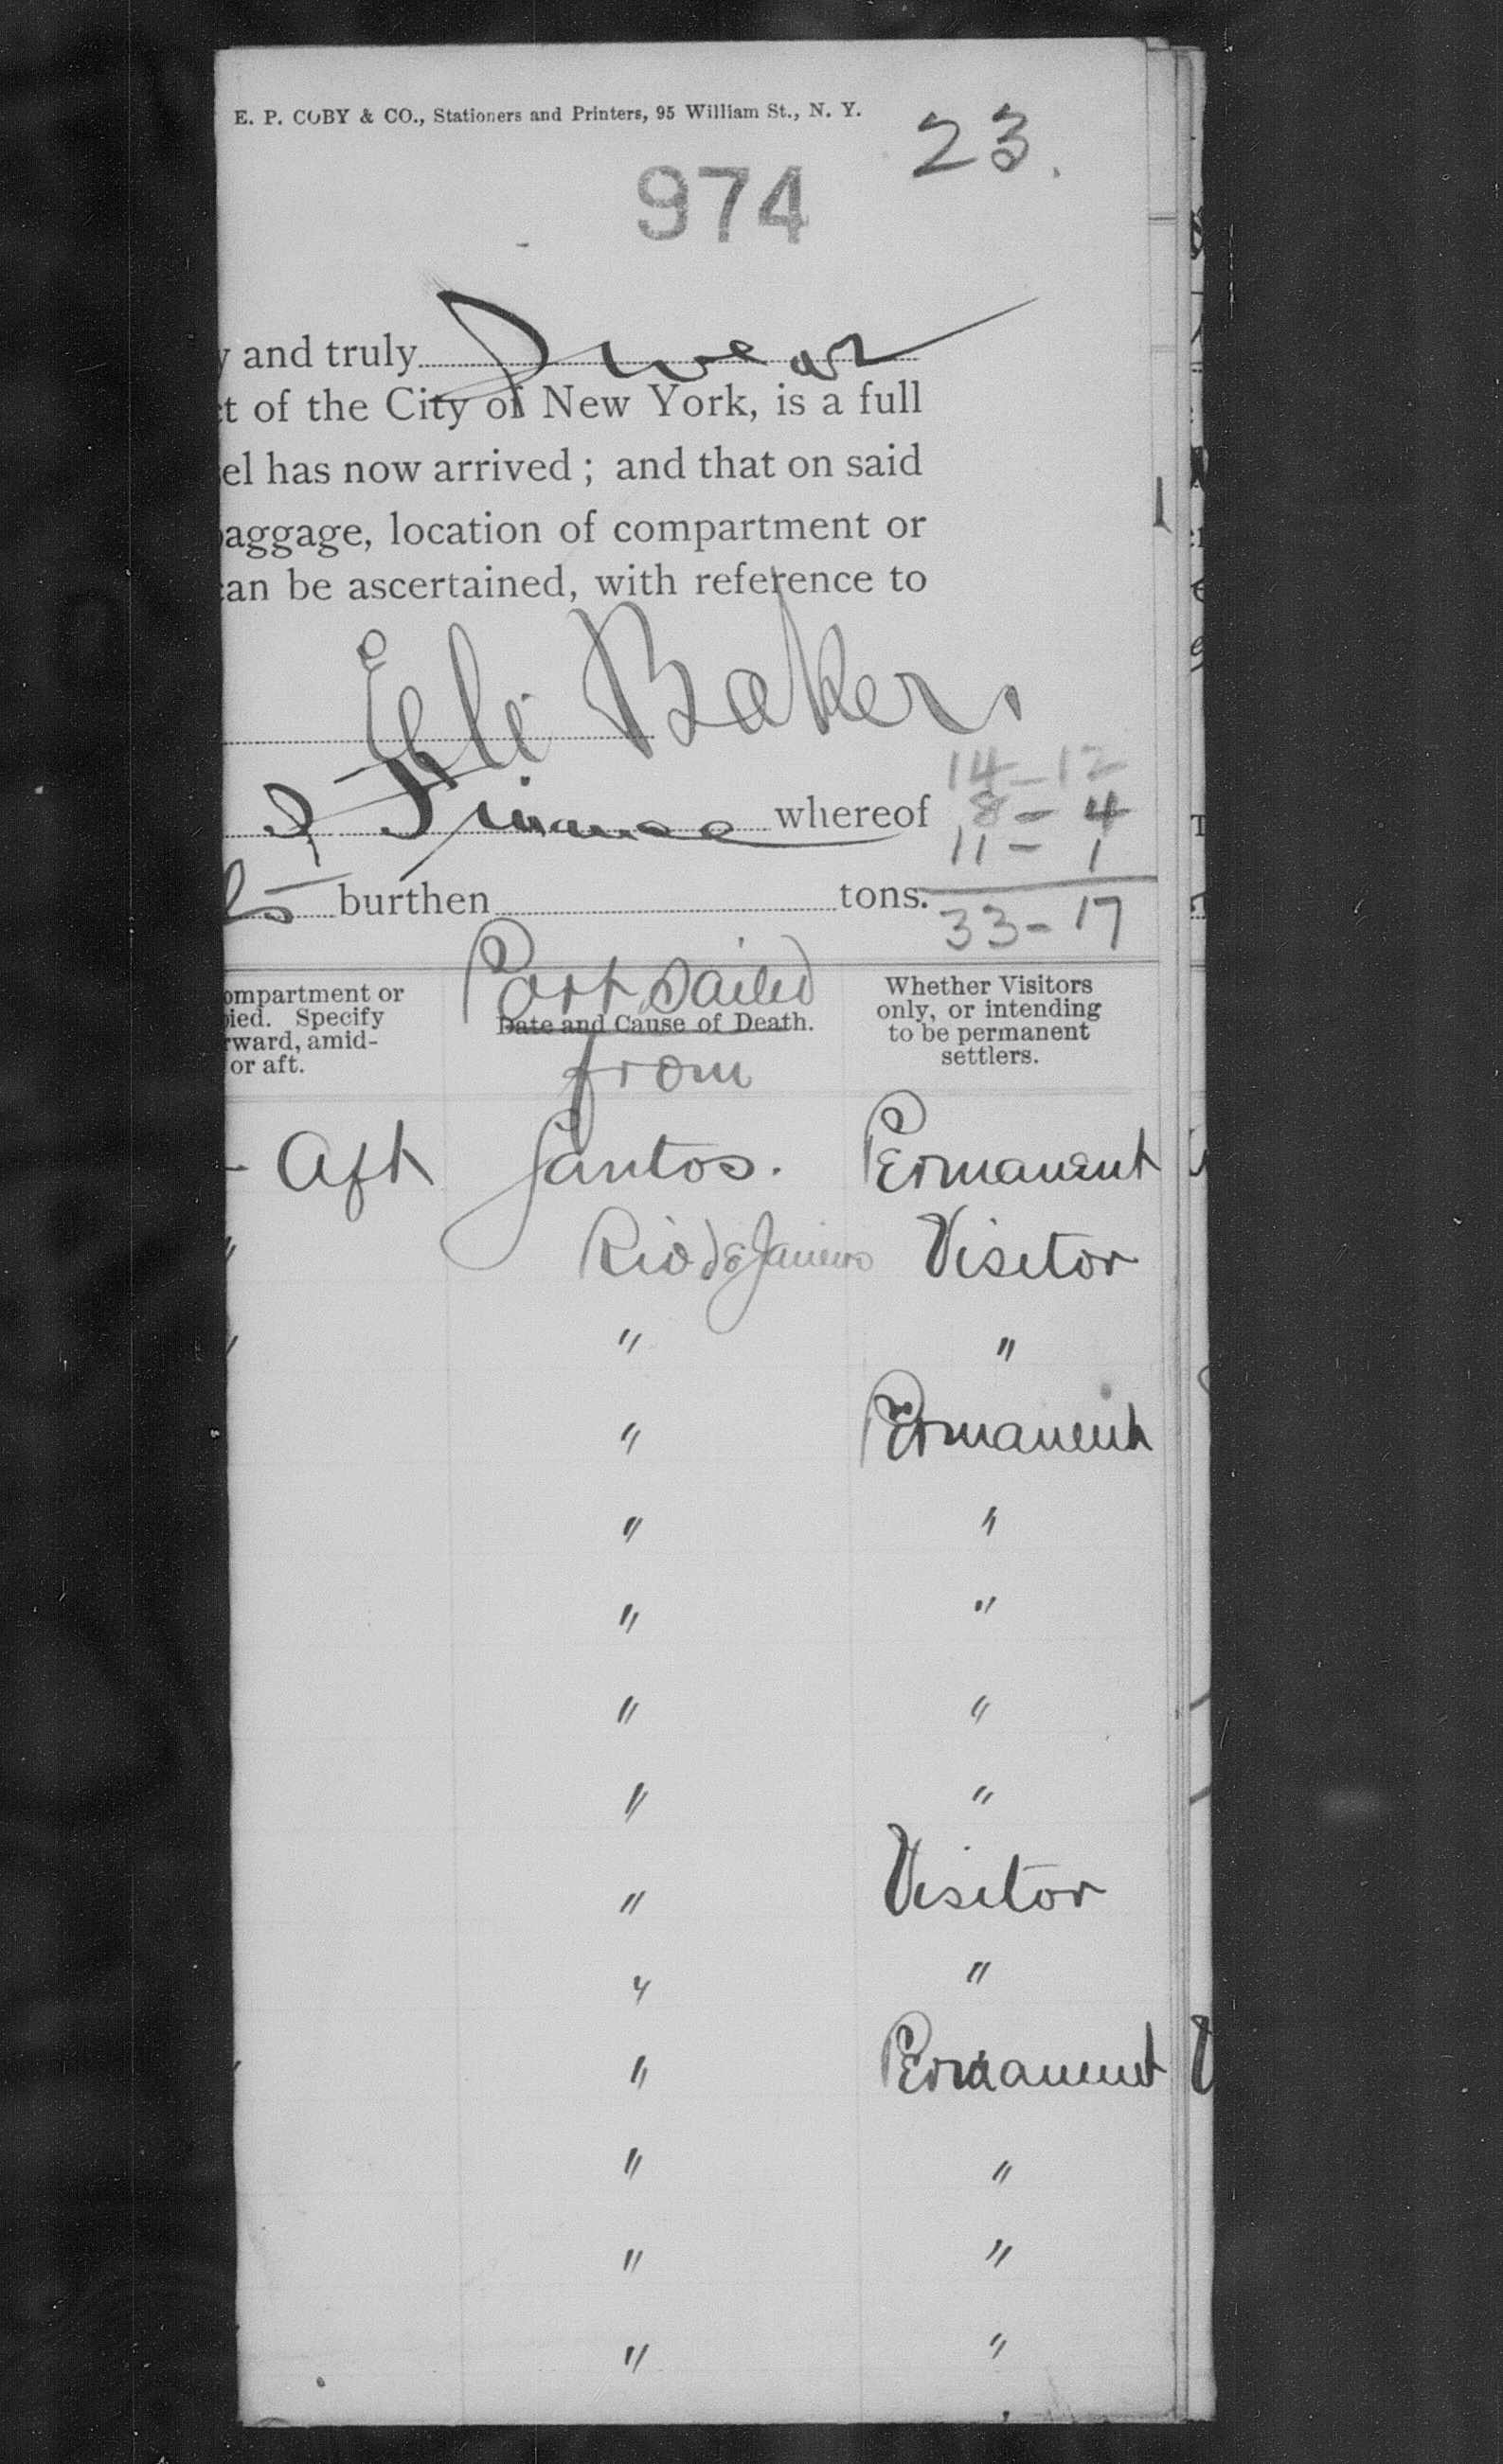 E. P. COBY & CO., Stationers and Printers, 95 William St., N. Y.
23.
974
y and truly Swear
ct of the City of New York, is a full
el has now arrived ; and that on said
baggage, location of compartment or
can be ascertained, with reference to
Eli Baker
14-12
Finance whereof 8-4
11-1
burthen tons.
33-17
ompartment or
pied. Specify
rward, amid-
or aft.
Port Sailed
Date and Cause of Death.
from
Whether Visitors
only, or intending
to be permanent
settlers.
- Aft Santos. Permanent
" Rio de Janeiro Visitor
" " "
" Permanent
" "
" "
" "
" "
" Visitor
" "
" Permanent
" "
" "
" "